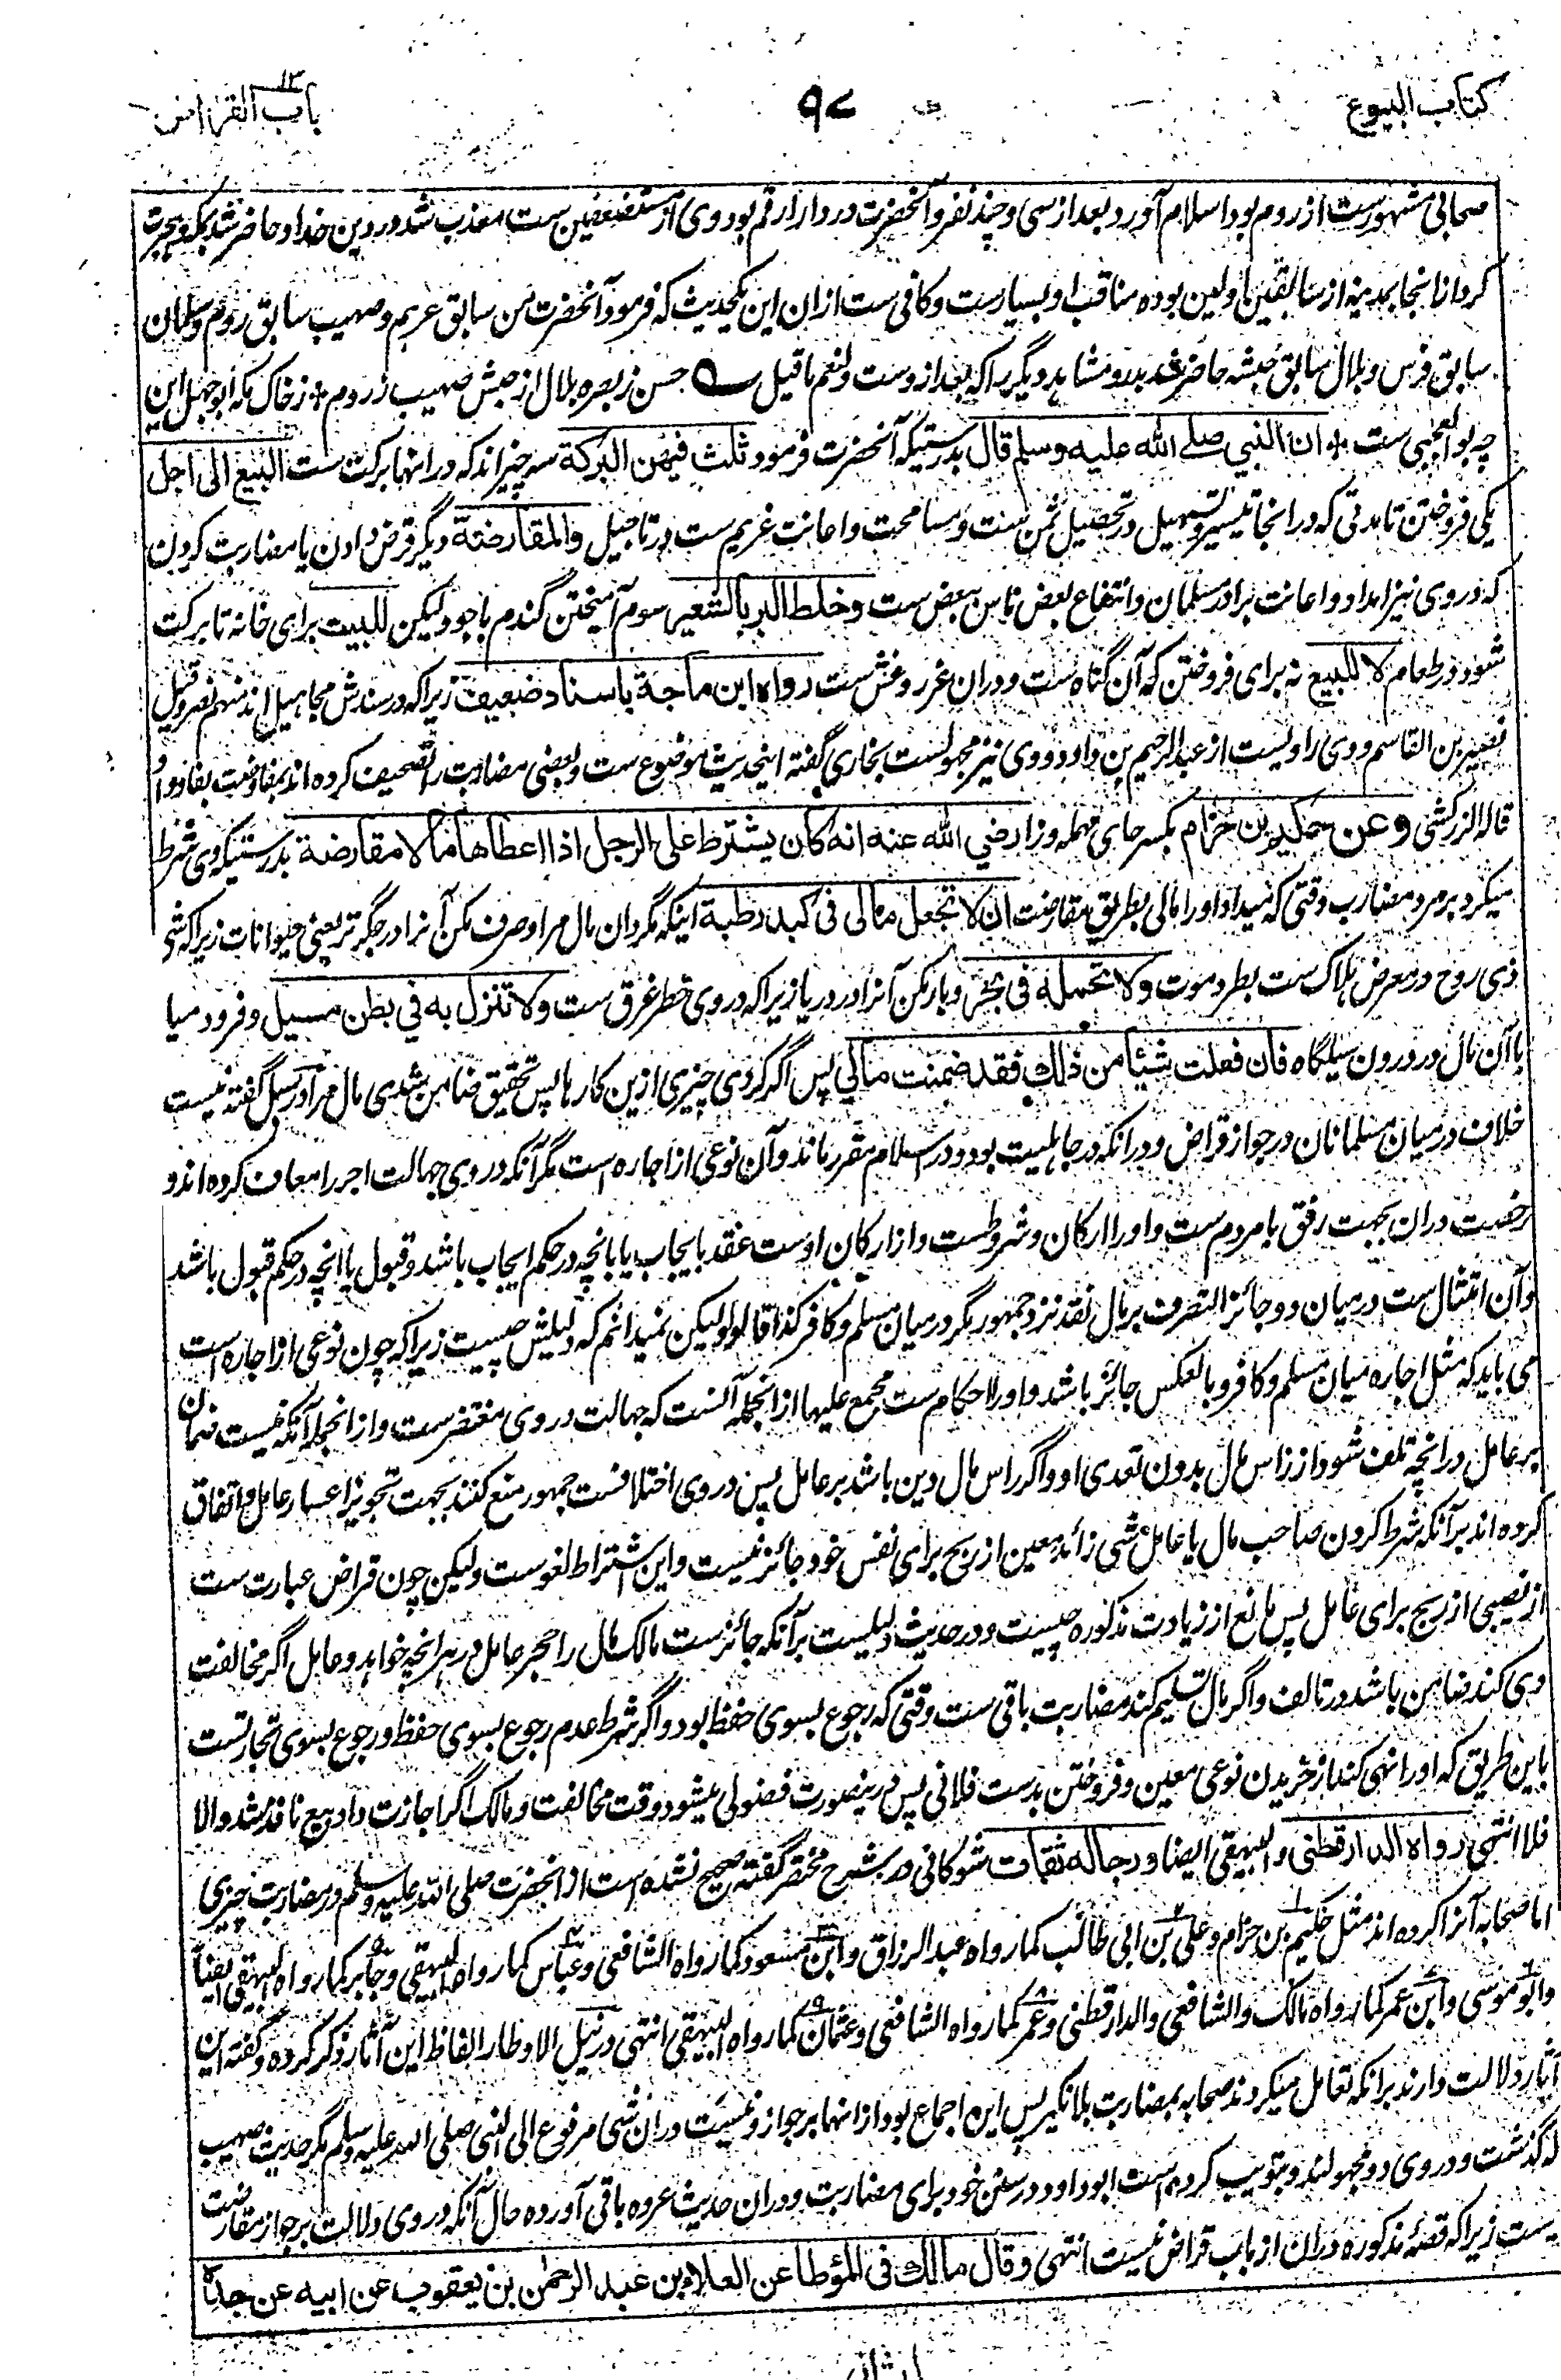 کتاب البیوع ۹۷ باب القراض ۱۳
صحابی مشهورست از روم بود اسلام آورد بعد از سی و چند نفر و آنحضرت در دار ارقم بود و وی از مستضعفین ست معذب شد در دین خدا و حاضر شد بمکه و هجرت
کرد از انجا بمدینه از سابقین اولین بوده مناقب او بسیارست و کافی ست ازان این یکحدیث که فرمود آنحضرت من سابق عربم و صهیب سابق روم و سلمان
سابق فرس و بلال سابق حبشه حاضر شد بدر و مشاهد دیگر را که بعد ازوست و لنعم ما قیل حسن ز بصره بلال از حبش صهیب از روم * ز خاک مکه ابوجهل این
چه بوالعجبی ست * ان النبي صلے الله علیه وسلم قال بدرستیکه آنحضرت فرمود ثلث فیهن البرکة سه چیز اند که در انها برکت ست البیع الی اجل
یکی فروختن تا مدتی که در انجا تیسیر و تسهیل در تحصیل ثمن ست و مسامحت و اعانت غریم ست در تاجیل والمقارضة دیگر قرض دادن یا مضاربت کردن
که در وی نیز امداد و اعانت برادر مسلمان و انتفاع بعض ناس ببعض ست وخلط البر بالشعیر سوم آمیختن گندم با جو ولیکن للبیت برای خانه تا برکت
شود در طعام لا للبیع نه برای فروختن که آن گناه ست و دران غرر و غش ست رواه ابن ماجة باسناد ضعیف زیرا که در سندش مجاهیل اند منهم نصر وقیل
نصیر بن القاسم و وی راویست از عبد الرحیم بن داود و وی نیز مجهولست بخاری گفته اینحدیث موضوع ست و بعضی مضاربت را تصحیف کرده اند بمفاوضت بفا و واو
قاله الزرکشی وعن حکیم بن حزام بکسر حای مهمله و زا رضي الله عنه انه کان یشترط علی الرجل اذا اعطاه مالا مقارضة بدرستیکه وی شرط
میکرد بر مرد مضارب وقتی که میداد او را مالی بطریق مقارضت ان لا تجعل مالی فی کبد رطبة اینکه مگردان مال مرا و صرف مکن آنرا در جگر تر یعنی حیوانات زیرا که شی
ذی روح در معرض هلاک ست بطرد موت ولا تحمله فی بحر و بار مکن آنرا در دریا زیرا که در وی خطر غرق ست ولا تنزل به في بطن مسیل و فرود میا
با آن مال در درون سیلگاه فان فعلت شیئا من ذلك فقد ضمنت مالي پس اگر کردی چیزی ازین کارها پس تحقیق ضامن شدی مال مرا در سبل گفته نیست
خلاف در میان مسلمانان در جواز قراض و درانکه در جاهلیت بود و در اسلام مقرر ماند و آن نوعی از اجاره است مگر آنکه در وی جهالت اجر را معاف کرده اند و
رخصت دران بجهت رفق بامردم ست و او را ارکان و شروط ست و از ارکان اوست عقد بایجاب یا بانچه در حکم ایجاب باشد و قبول یا انچه در حکم قبول باشد
و آن امتثال ست در میان دو جائز التصرف بر مال نقد نزد جمهور مگر در میان مسلم و کافر کذا قالوا ولیکن نمیدانم که دلیلش چیست زیرا که چون نوعی از اجاره است
می باید که مثل اجاره میان مسلم و کافر و بالعکس جائز باشد و او را احکام ست مجمع علیها ازانجمله آنست که جهالت در وی مغتفر ست و ازانجمله آنکه نیست ضمان
بر عامل در انچه تلف شود از راس مال بدون تعدی او و اگر راس مال دین باشد بر عامل پس در وی اختلاف ست جمهور منع کنند بجهت تجویز اعسار عامل و اتفاق
کرده اند بر آنکه شرط کردن صاحب مال یا عامل شی زائد معین از ربح برای نفس خود جائز نیست و این اشتراط لغو ست ولیکن چون قراض عبارت ست
از نصیبی از ربح برای عامل پس مانع از زیادت مذکوره چیست و در حدیث دلیلست بر آنکه جائز ست مالک مال را حجر عامل در هر انچه خواهد و عامل اگر مخالفت
وی کند ضامن باشد در تالف و اگر مال تسلیم کند مضاربت باقی ست وقتی که رجوع بسوی حفظ بود و اگر شرط عدم رجوع بسوی حفظ و رجوع بسوی تجارتست
باین طریق که او را نهی کند از خریدن نوعی معین و فروختن بدست فلانی پس درینصورت فضولی میشود وقت مخالفت و مالک اگر اجازت داد بیع نافذ شد والا
فلا انتهی رواه الدارقطنی والبیهقی ایضا ورجاله ثقات شوکانی در شرح مختصر گفته صحیح نشده است از انحضرت صلی الله علیه وسلم در مضاربت چیزی
اما صحابه آنرا کرده اند مثل حکیم بن حزام و علی بن ابی طالب کما رواه عبد الرزاق و ابن مسعود کما رواه الشافعی و عباس کما رواه البیهقی و جابر کما رواه البیهقی ایضاً
و ابو موسی و ابن عمر کما رواه مالک والشافعی والدارقطنی و عمر کما رواه الشافعی و عثمان کما رواه البیهقی انتهی در نیل الاوطار الفاظ این آثار ذکر کرده و گفته این
آثار دلالت دارند برانکه تعامل میکردند صحابه بمضاربت بلا نکیر پس این اجماع بود از انها بر جواز و نیست دران شی مرفوع الی النبی صلی الله علیه وسلم مگر حدیث صهیب
که گذشت و در وی دو مجهولند و تبویب کرده است ابو داود در سنن خود برای مضاربت و دران حدیث عروه باقی آورده حال آنکه در وی دلالت بر جواز مقارضت
نیست زیرا که قصهٔ مذکوره دران از باب قراض نیست انتهی وقال مالك فی المؤطا عن العلاء بن عبد الرحمن بن یعقوب عن ابیه عن جده